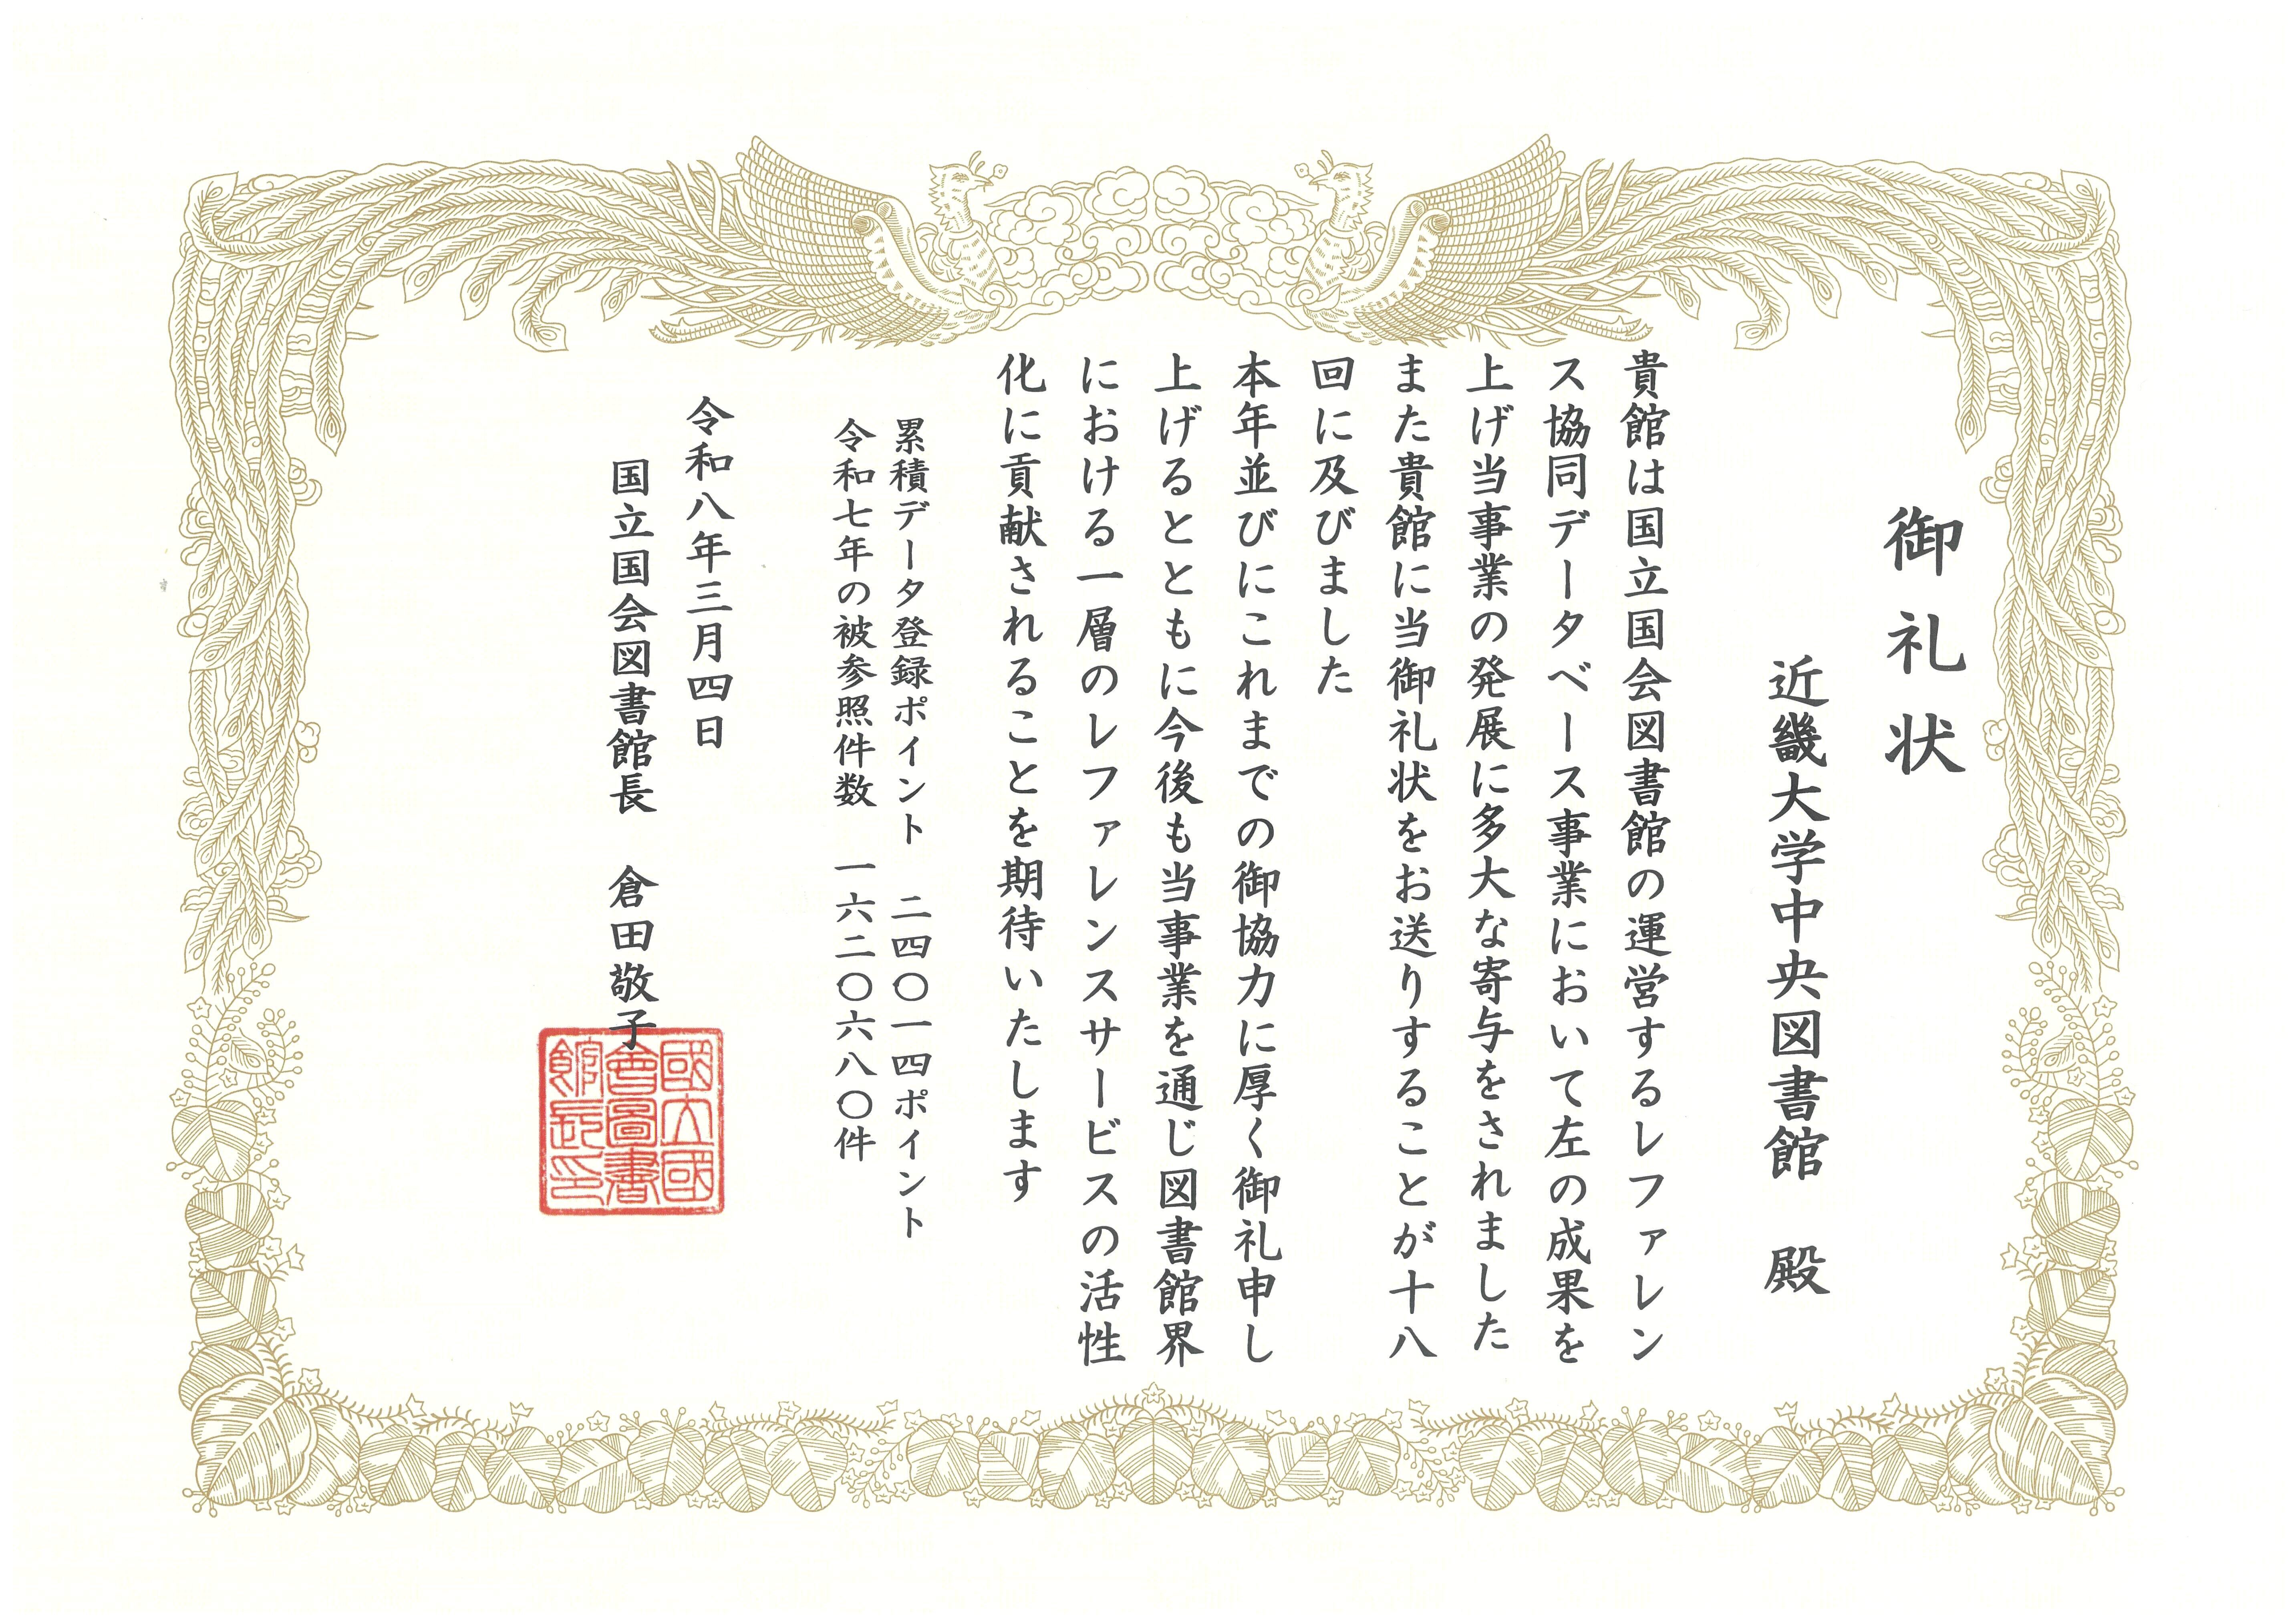 御礼状
近畿大学中央図書館　殿
貴館は国立国会図書館の運営するレファレン
ス協同データベース事業において左の成果を
上げ当事業の発展に多大な寄与をされました
また貴館に当御礼状をお送りすることが十八
回に及びました
本年並びにこれまでの御協力に厚く御礼申し
上げるとともに今後も当事業を通じ図書館界
における一層のレファレンスサービスの活性
化に貢献されることを期待いたします
累積データ登録ポイント　二四〇一四ポイント
令和七年の被参照件数　一六二〇六八〇件
令和八年三月四日
国立国会図書館長　倉田敬子
國立國
會圖書
館長印